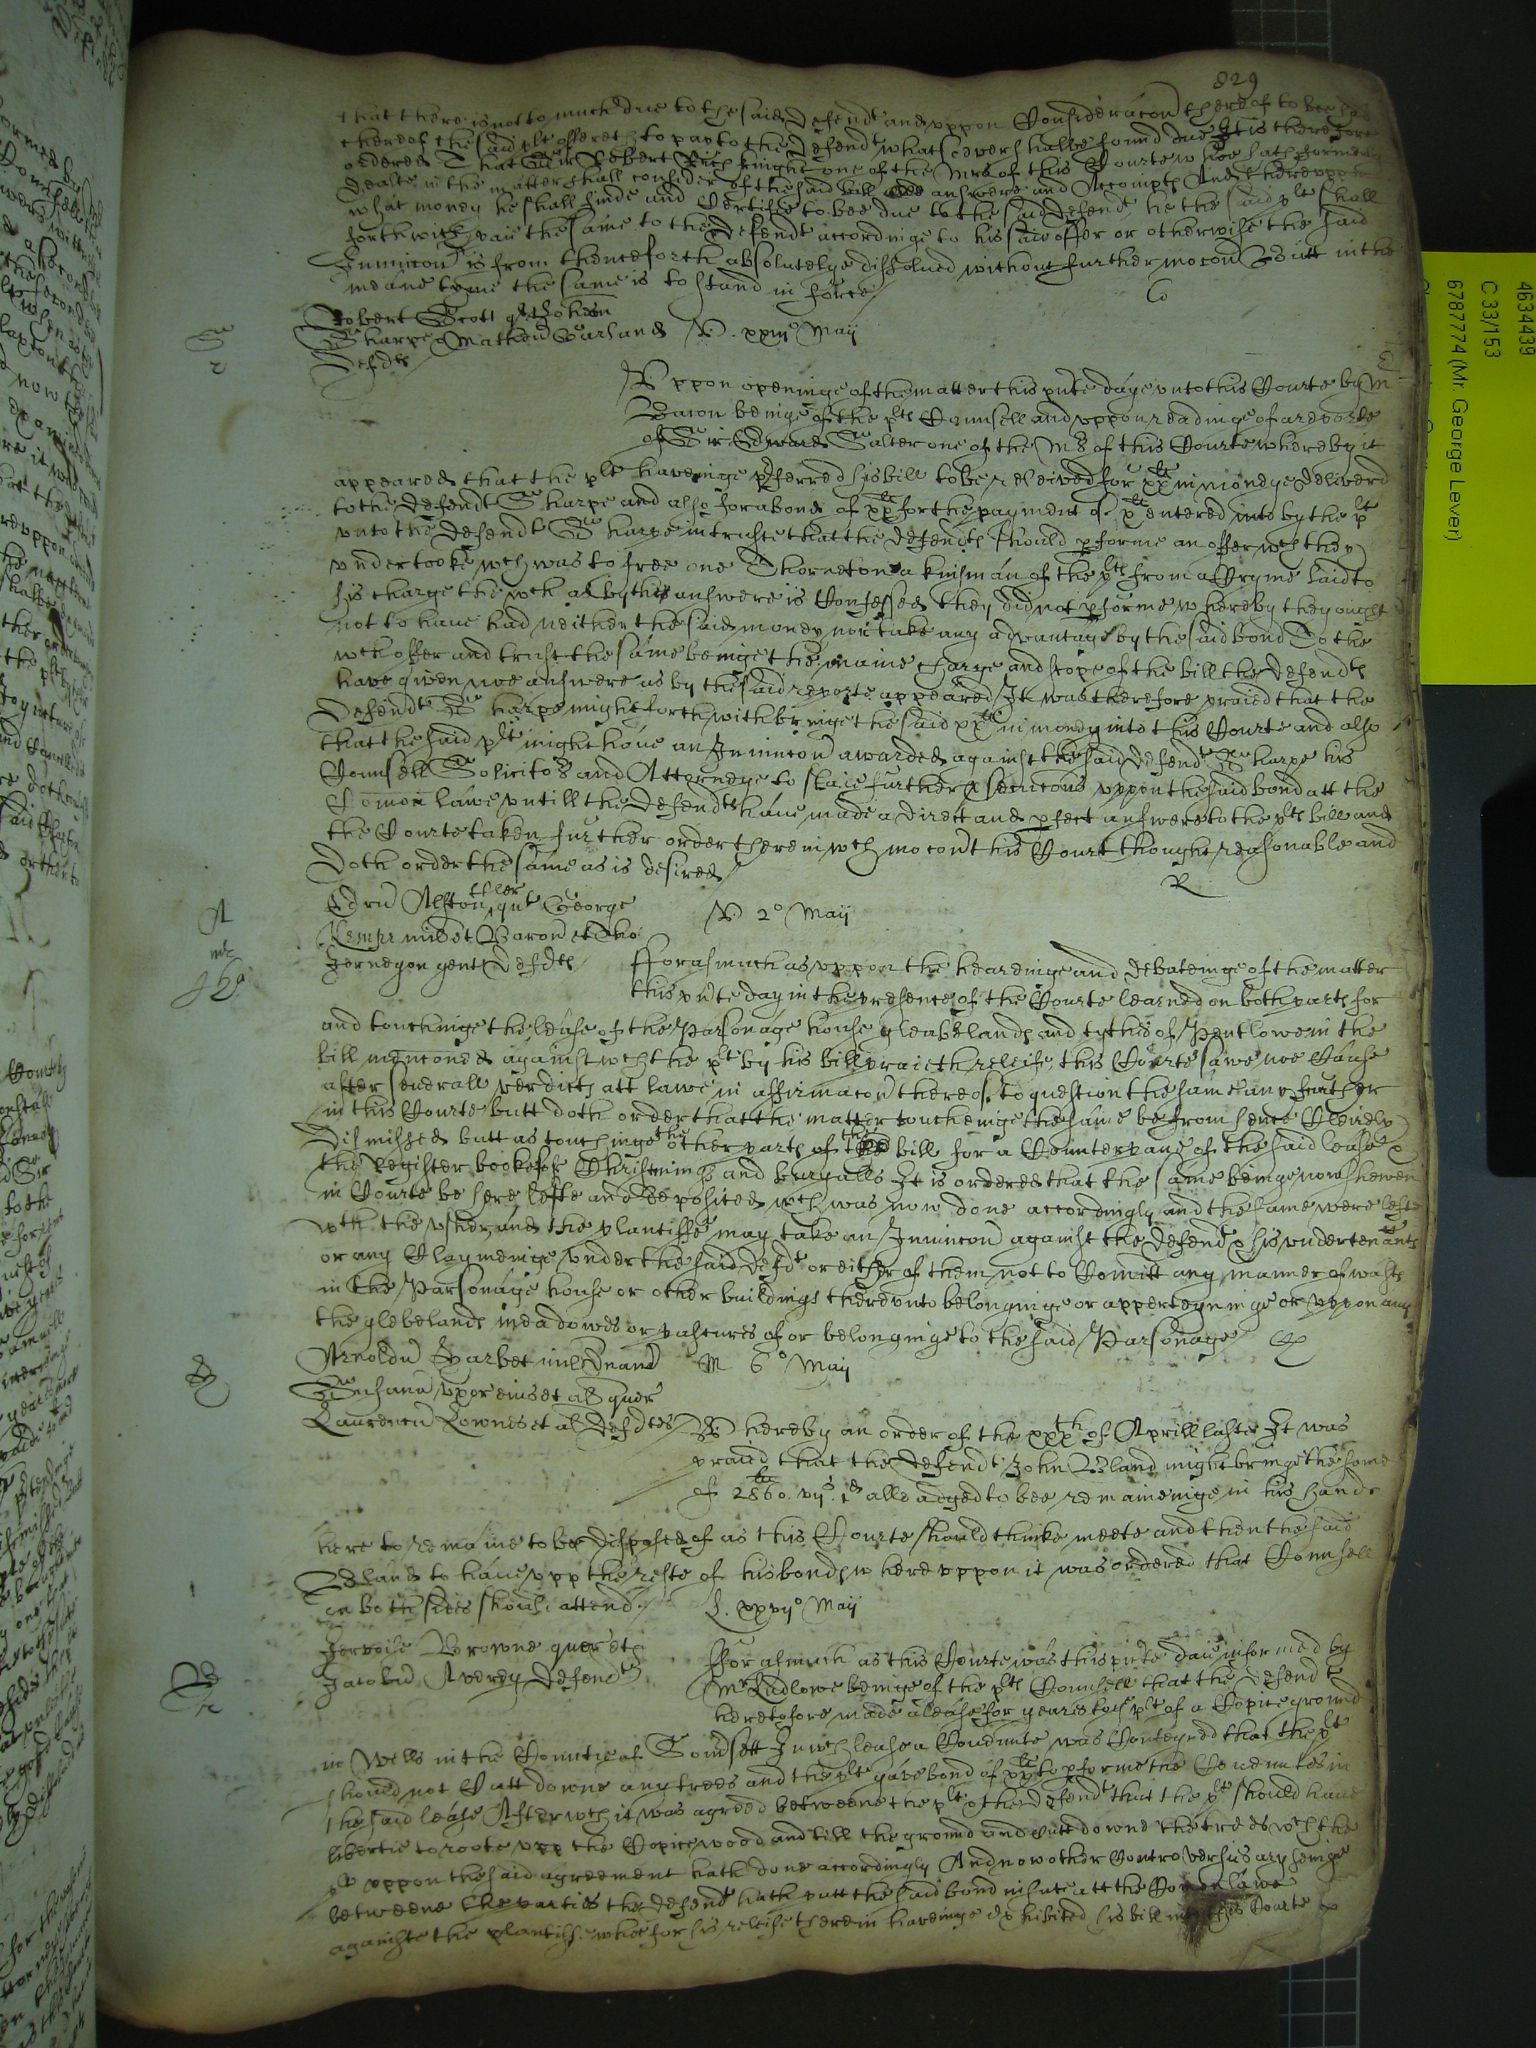 829
that there is not so much due to the said Defendt and uppon Consideracon thereof to bee had
thereof the said plt offereth to pay to the Defendt what soever shalbe found due It is therefore
ordered That Sir Robert Rich knight one of the Mrs of this Courte whoe hath formerly
dealte in the matter shall consider of the said bill answere and Accompts And thereuppon
what money he shall finde and Certifie to bee due to the said Defendt he the said plt shall
forthwith paie the same to the Defendt accordinge to his said offer or otherwise the said
Iniuncon is from thenceforth absolutelye dissolued without further mocon But in the
meane tyme the same is to stand in force
Robert Scott qut John
Sharpe Mathew Garland V. xxiijo Maij
Defdts
Uppon openinge of the matter this pnte daye unto this Courte by Mr
Bacon beinge of the plts Counsell and uppon readinge of a reporte
of Sir Edward Salter one of the Mrs of this Courte whereby it
appeared that the plt haveinge pferred his bill to be releived for xxli in moneye deliverd
to the defendt Sharpe and also for a bond of xxli for the payment of xli entered into by the plt
unto the Defendt Sharpe in truste that the Defendts should pforme an offer wch they
undertooke wch was to free one Thorneton a kinsman of the plts from a Cryme laid to
his charge the wch as by their answere is Confessed they did not pforme whereby they ought
not to haue had neither the said money nor take any advantage by the said bond To the
wch offer and trust the same beinge the maine charge and scope of the bill the defendts
have given noe answere as by the said reporte appeared It was therefore praied that the
Defendt Sharpe might forthwith bringe the said xxli in money into this Courte and also
that the said plt might haue an Iniuncon awarded against the said Defendt Sharpe his
Counsell Solicitors and Attorneye to staie further psecucons uppon the said bond att the
Comon lawe untill the Defendts haue made a direct and pfect answere to the plts bill and
the Courte taken further order therein wch mocon this Court thought reasonable and
doth order the same as is desired
R
Edru Alston cler qut George
Kempe milit Baron et Tho
Jernegon gent Defdts
V 2o Maij
Fforasmuch as uppon the heareinge and debateinge of the matter
this pnte day in the presence of the Courte learned on both parts for
and touchinge the lease of the Parsonage house gleabelands and tythes of Pentlowe in the
bill menconed against wch the plt by his bill praieth releife this Courte sawe noe Cause
after severall verdicts att lawe in affirmacon thereof to question the same any further
in this Courte butt doth order that the matter toucheinge the same be from hence Clerely
dismissed butt as touchinge the other parts of the bill for a Counterpane of the said lease &
the Register booke of Christnings and buryalls It is ordered that the same beinge now shewen
in Courte be here lefte and deposited wch was now done accordingly and the same were lefte
wth the usher and the plantiffe may take an Iniuncon against the Defendt & his undertenants
or any Claymeinge under the said defdt or either of them not to Comitt any manner of wasts
in the Parsonage house or other buildings thereunto belonginge or apperteyninge or uppon any
the glebelands meadowes or pastures of or belonginge to the said Parsonage
Arnoldu Harbet mil et
Susana uxor eius et als quer
Laurenciu Lownes et als Defdtes
M 6o Maij
Whereby an order of the xxxth of Aprill laste It was
praied that the Defendt John Bland might bringe the some
of 2860li vijs jd alleadged to bee remaineinge in his hands
here to remaine to be disposed of as this Courte should thinke meete and then the said
Bland to haue upp the reste of his bonds whereuppon it was ordered that Counsell
on both sides should attend
L. xxvijo Maij
Jervoise Browne quer et
Jacobu Averey Defend
Fforasmuch as this Courte was this pnte daie informed by
Mr Ludlowe beinge of the plts Counsell that the Defendt
heretofore made a lease for yeares to the plt of a Copice ground
in Wells in the Countie of Somsett In wch lease a Covennte was Conteyned that the plt
should not Cutt downe any trees and the plt gave bond of xxli to pforme the Covennntes in
the said lease After wch it was agreed betweene the plt & the Defendt that the plt should haue
libertie to roote upp the Copice wood and till the ground and cutt downe the trees wch the
plt uppon the said agreement hath done accordingly And now other Controversies aryseinge
betweene the parties the Defendt hath putt the said bond in sute att the Comon lawe
againste the plantiffe whoe for his releife therein haveinge exhibited his bill into this Courte
4634439
C 33/153
6787774 (Mr. George Lever)